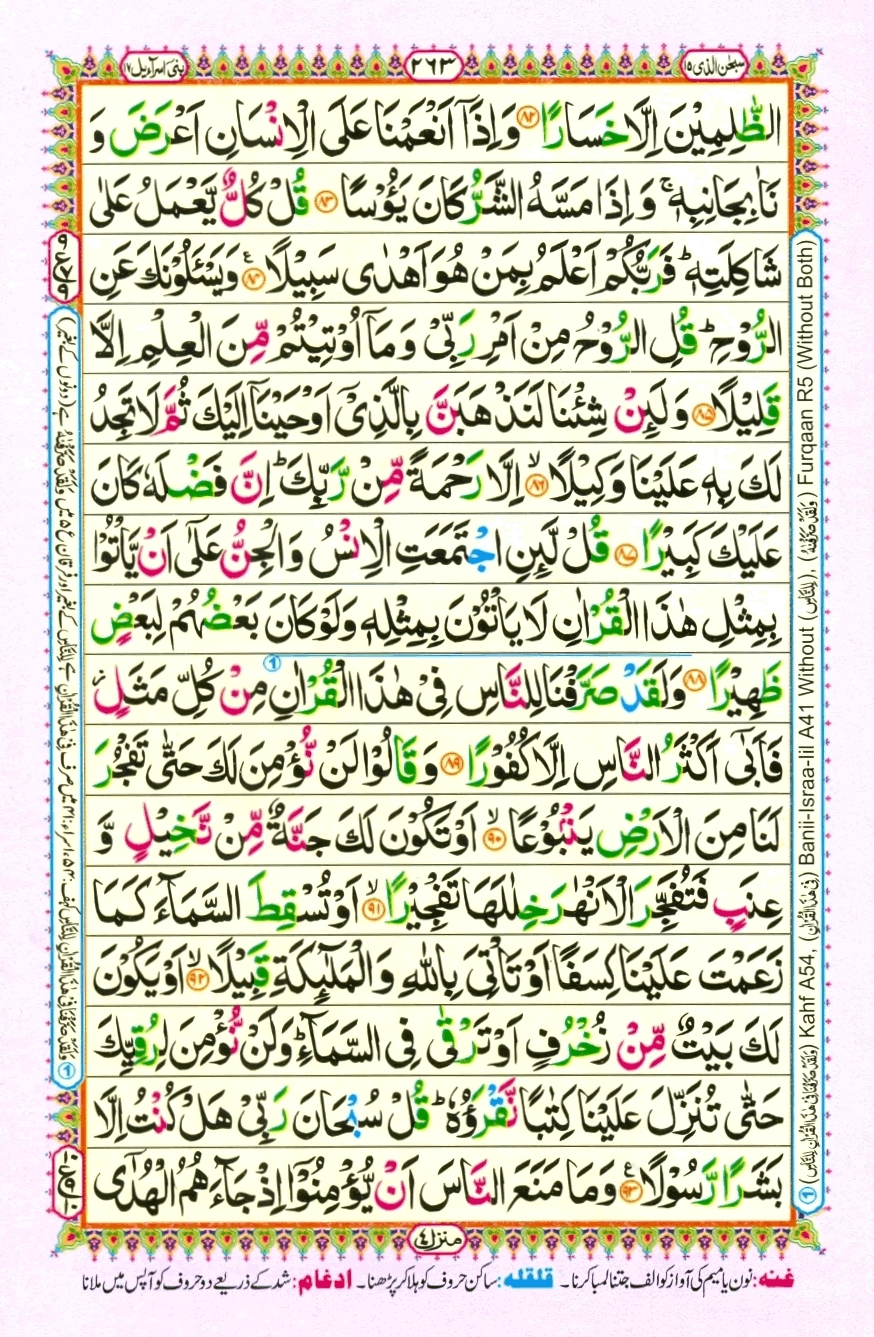 سبحٰن الذی ۱۵
۲۶۳
بنی اسرآءیل ۱۷
الظّٰلِمِيْنَ اِلَّا خَسَارًا ﴿۸۲﴾ وَاِذَاۤ اَنْعَمْنَا عَلَى الْاِنْسَانِ اَعْرَضَ وَ
نَاٰ بِجَانِبِهٖ ۚ وَاِذَا مَسَّهُ الشَّرُّ كَانَ يَـُٔوْسًا ﴿۸۳﴾ قُلْ كُلٌّ يَّعْمَلُ عَلٰى
شَاكِلَتِهٖ ؕ فَرَبُّكُمْ اَعْلَمُ بِمَنْ هُوَ اَهْدٰى سَبِيْلًا ﴿۸۴﴾ وَيَسْـَٔلُوْنَكَ عَنِ
الرُّوْحِ ؕ قُلِ الرُّوْحُ مِنْ اَمْرِ رَبِّىْ وَمَاۤ اُوْتِيْتُمْ مِّنَ الْعِلْمِ اِلَّا
قَلِيْلًا ﴿۸۵﴾ وَلَىِٕنْ شِئْنَا لَنَذْهَبَنَّ بِالَّذِىْۤ اَوْحَيْنَاۤ اِلَيْكَ ثُمَّ لَا تَجِدُ
لَكَ بِهٖ عَلَيْنَا وَكِيْلًا ۙ﴿۸۶﴾ اِلَّا رَحْمَةً مِّنْ رَّبِّكَ ؕ اِنَّ فَضْلَهٗ كَانَ
عَلَيْكَ كَبِيْرًا ﴿۸۷﴾ قُلْ لَّىِٕنِ اجْتَمَعَتِ الْاِنْسُ وَالْجِنُّ عَلٰۤى اَنْ يَّاْتُوْا
بِمِثْلِ هٰذَا الْقُرْاٰنِ لَا يَاْتُوْنَ بِمِثْلِهٖ وَلَوْ كَانَ بَعْضُهُمْ لِبَعْضٍ
ظَهِيْرًا ﴿۸۸﴾ وَلَقَدْ صَرَّفْنَا لِلنَّاسِ فِىْ هٰذَا الْقُرْاٰنِ مِنْ كُلِّ مَثَلٍ ؗ
فَاَبٰٓى اَكْثَرُ النَّاسِ اِلَّا كُفُوْرًا ﴿۸۹﴾ وَقَالُوْا لَنْ نُّؤْمِنَ لَكَ حَتّٰى تَفْجُرَ
لَنَا مِنَ الْاَرْضِ يَنْۢبُوْعًا ۙ﴿۹۰﴾ اَوْ تَكُوْنَ لَكَ جَنَّةٌ مِّنْ نَّخِيْلٍ وَّ
عِنَبٍ فَتُفَجِّرَ الْاَنْهٰرَ خِلٰلَهَا تَفْجِيْرًا ۙ﴿۹۱﴾ اَوْ تُسْقِطَ السَّمَآءَ كَمَا
زَعَمْتَ عَلَيْنَا كِسَفًا اَوْ تَاْتِىَ بِاللّٰهِ وَالْمَلٰٓىِٕكَةِ قَبِيْلًا ۙ﴿۹۲﴾ اَوْ يَكُوْنَ
لَكَ بَيْتٌ مِّنْ زُخْرُفٍ اَوْ تَرْقٰى فِى السَّمَآءِ ؕ وَلَنْ نُّؤْمِنَ لِرُقِيِّكَ
حَتّٰى تُنَزِّلَ عَلَيْنَا كِتٰبًا نَّقْرَؤُهٗ ؕ قُلْ سُبْحَانَ رَبِّىْ هَلْ كُنْتُ اِلَّا
بَشَرًا رَّسُوْلًا ﴿۹۳﴾ وَمَا مَنَعَ النَّاسَ اَنْ يُّؤْمِنُوْۤا اِذْ جَآءَهُمُ الْهُدٰٓى
منزل ۴
غنه: نون یا میم کی آواز کو الف جتنا لمبا کرنا۔ قلقله: ساکن حروف کو ہلا کر پڑھنا۔ ادغام: شد کے ذریعے دو حروف کو آپس میں ملانا
① (وَلَقَدْ صَرَّفْنَا فِىْ هٰذَا الْقُرْاٰنِ لِلنَّاسِ) Kahf A54, (فِىْ هٰذَا الْقُرْاٰنِ) Banii-Israa-Iil A41 Without (لِلنَّاسِ), (وَلَقَدْ صَرَّفْنٰهُ) Furqaan R5 (Without Both)